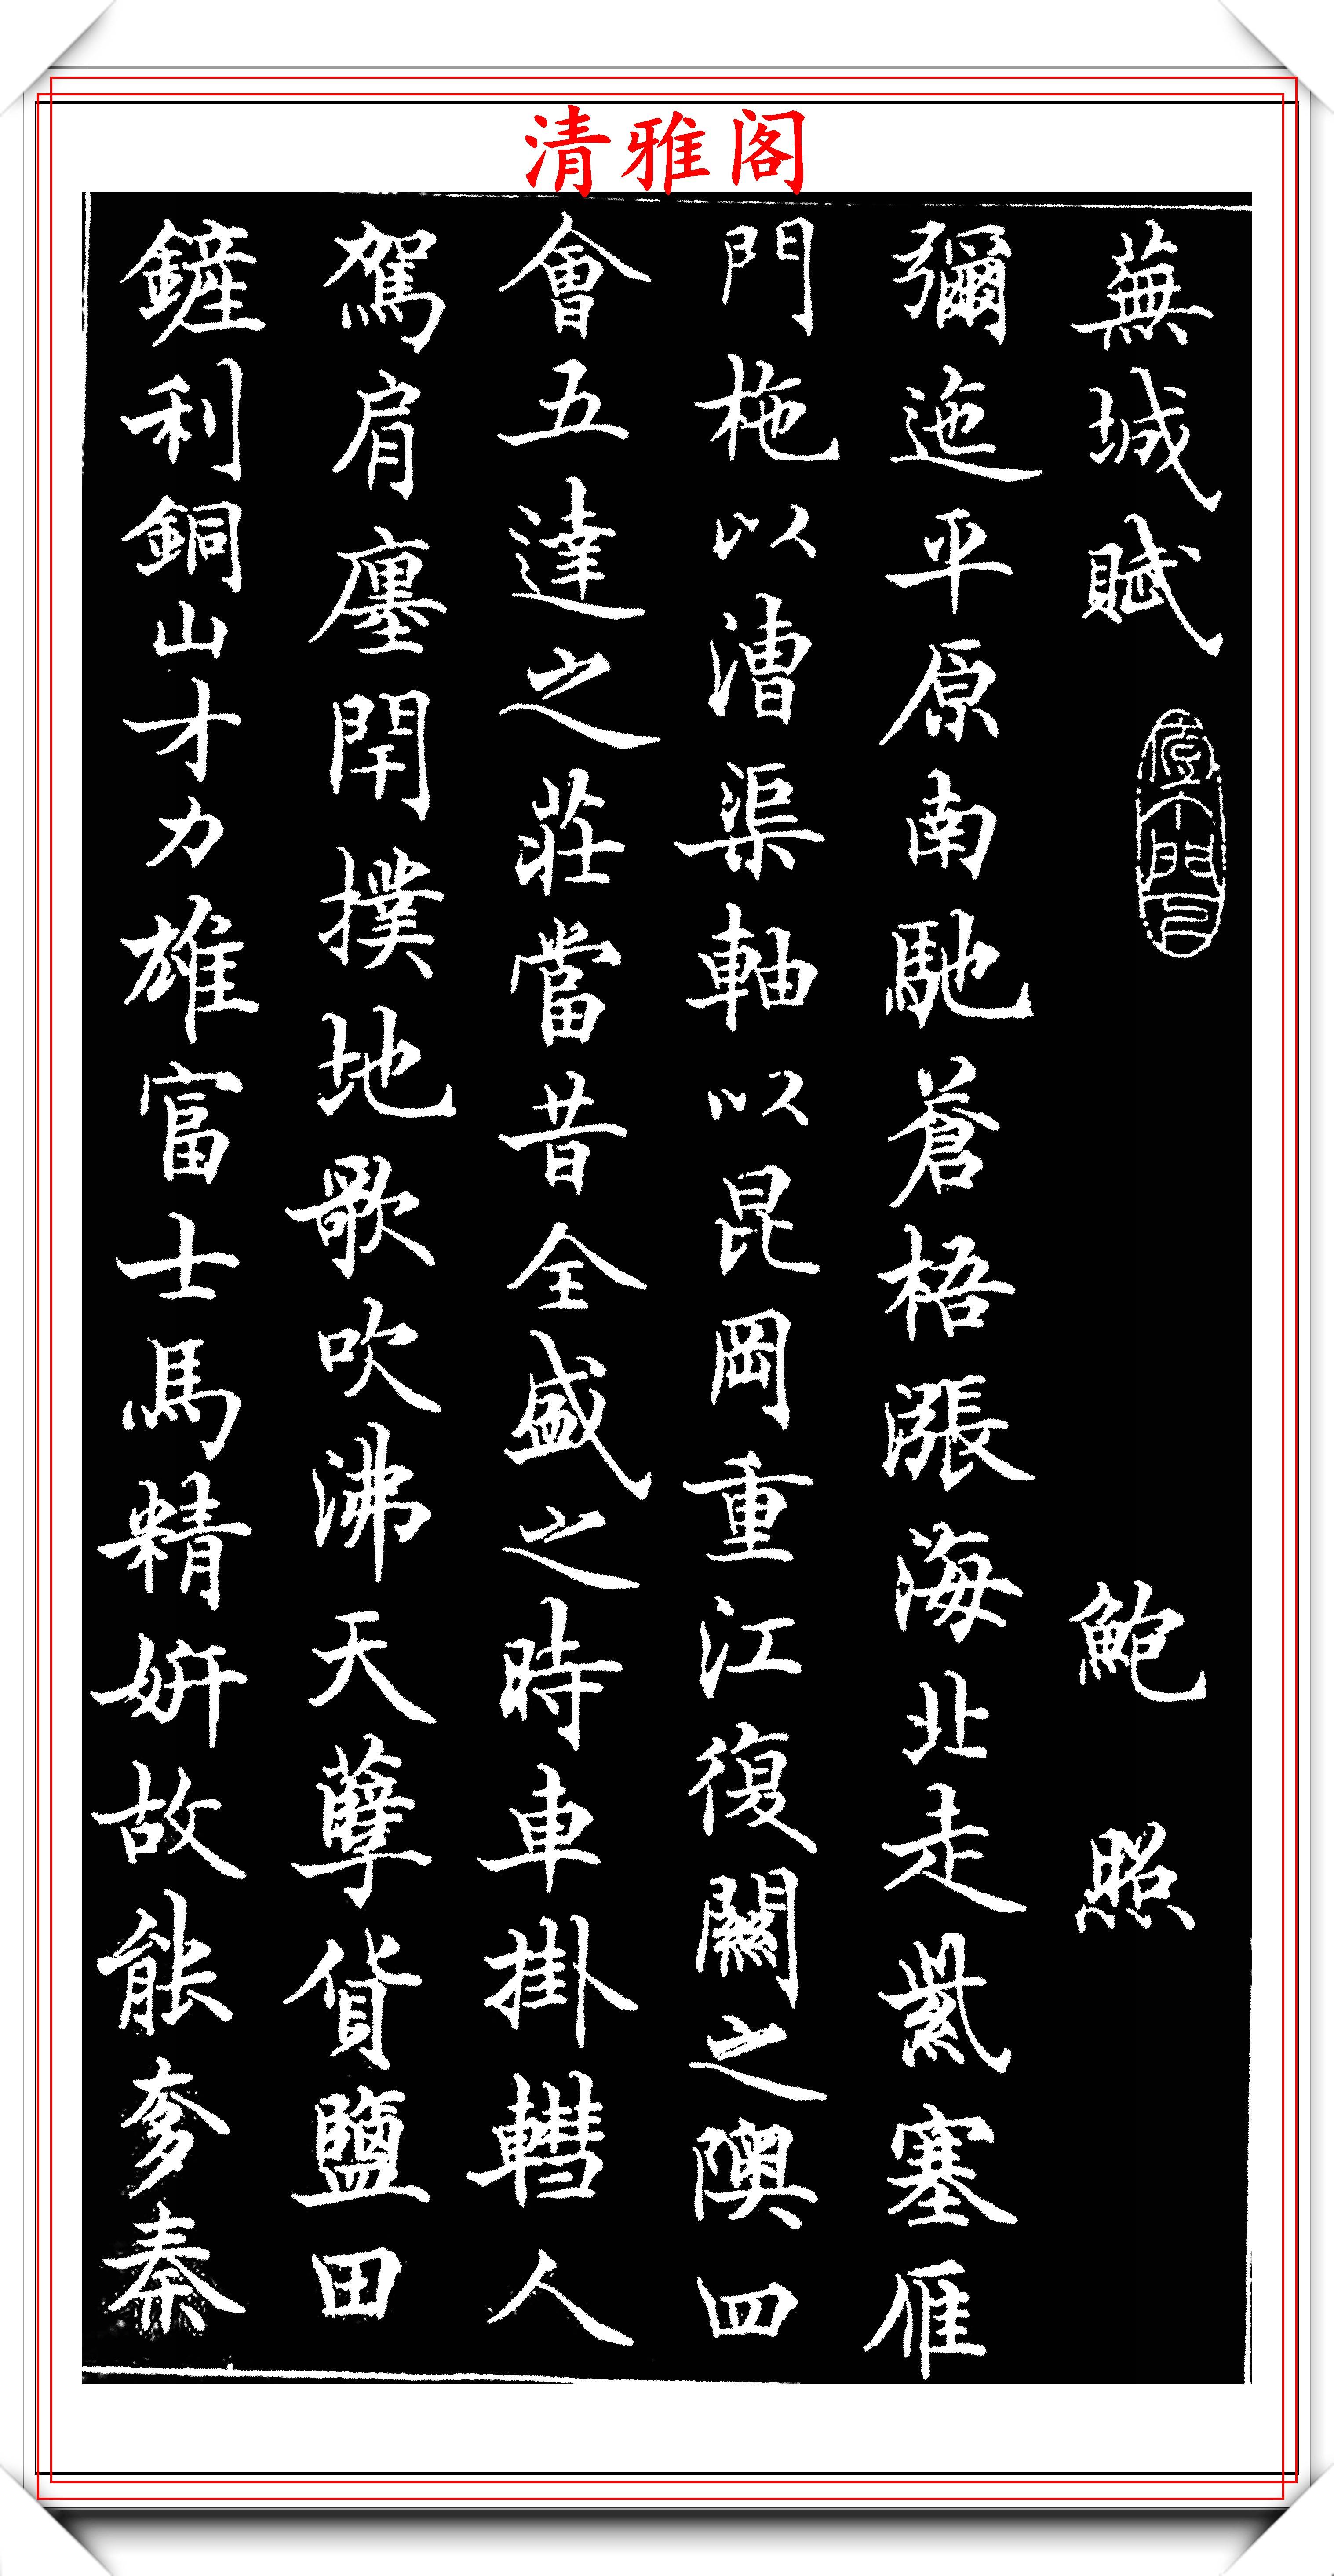 清雅阁
蕪城賦 鮑照
彌迤平原南馳蒼梧漲海北走紫塞雁
門柂以漕渠軸以昆岡重江復關之隩四
會五達之莊當昔全盛之時車掛轊人
駕肩廛閈撲地歌吹沸天孳貨鹽田
鏟利銅山才力雄富士馬精妍故能奓秦